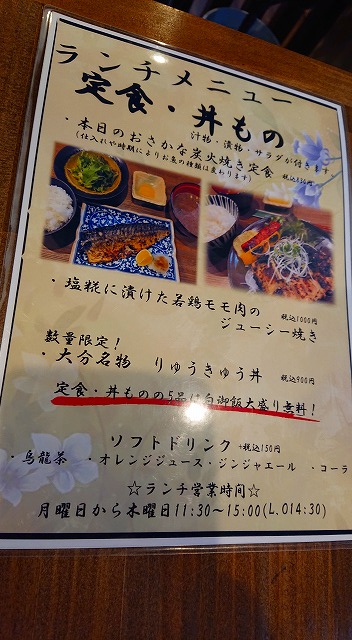 ランチメニュー
定食・丼もの
汁物・漬物・サラダが付きます
・本日のおさかな炭火焼き定食 税込850円
(仕入れや時期によりお魚の種類は変わります)
・塩糀に漬けた若鶏モモ肉の
ジューシー焼き 税込1000円
数量限定!
・大分名物 りゅうきゅう丼 税込900円
定食・丼ものの5品は白御飯大盛り無料!
ソフトドリンク +税込150円
・烏龍茶 ・オレンジジュース・ジンジャエール ・コーラ
☆ランチ営業時間☆
月曜日から木曜日11:30~15:00(L.O14:30)